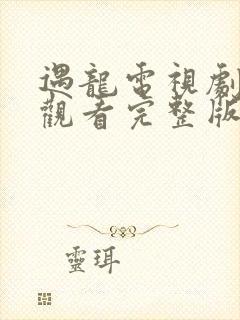 遇龍電視劇
觀看完整版
靈珥